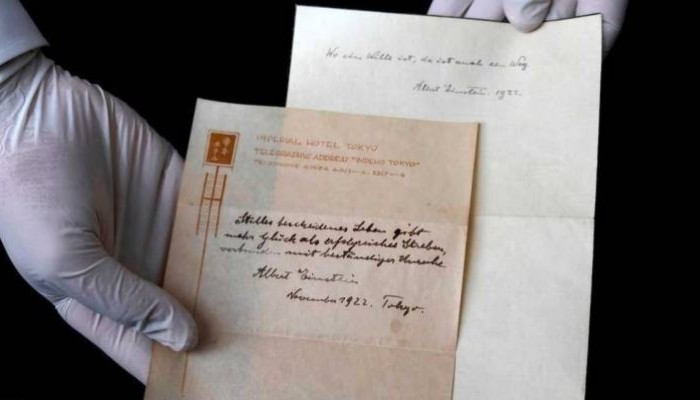 Wo ein Wille ist, da ist auch ein Weg
Albert Einstein. 1922.
IMPERIAL HOTEL TOKYO
TELEGRAPHIC ADDRESS "IMPEHO TOKYO"
TELEPHONE GINZA
Stilles bescheidenes Leben gibt
mehr Glück als erfolgreiches Streben,
verbunden mit beständiger Unruhe
Albert Einstein
November 1922. Tokyo.